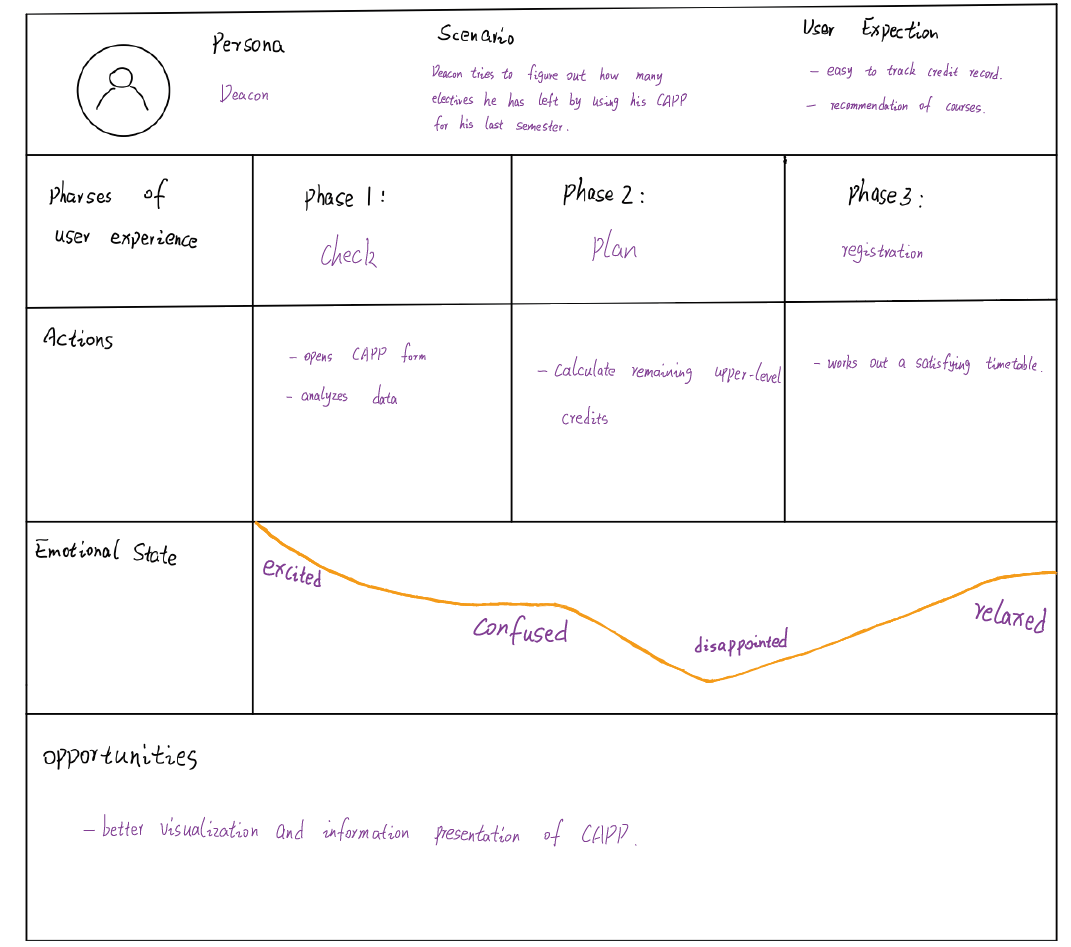 Persona
Deacon
Scenario
Deacon tries to figure out how many
electives he has left by using his CAPP
for his last semester.
User Expection
- easy to track credit record.
- recommendation of courses.
Pharses of
user experience
Phase 1:
Check
Phase 2:
Plan
Phase 3:
registration
Actions
- opens CAPP form
- analyzes data
- Calculate remaining upper-level
credits
- works out a satisfying timetable.
Emotional State
excited
confused
disappointed
relaxed
opportunities
- better visualization and information presentation of CAPP.